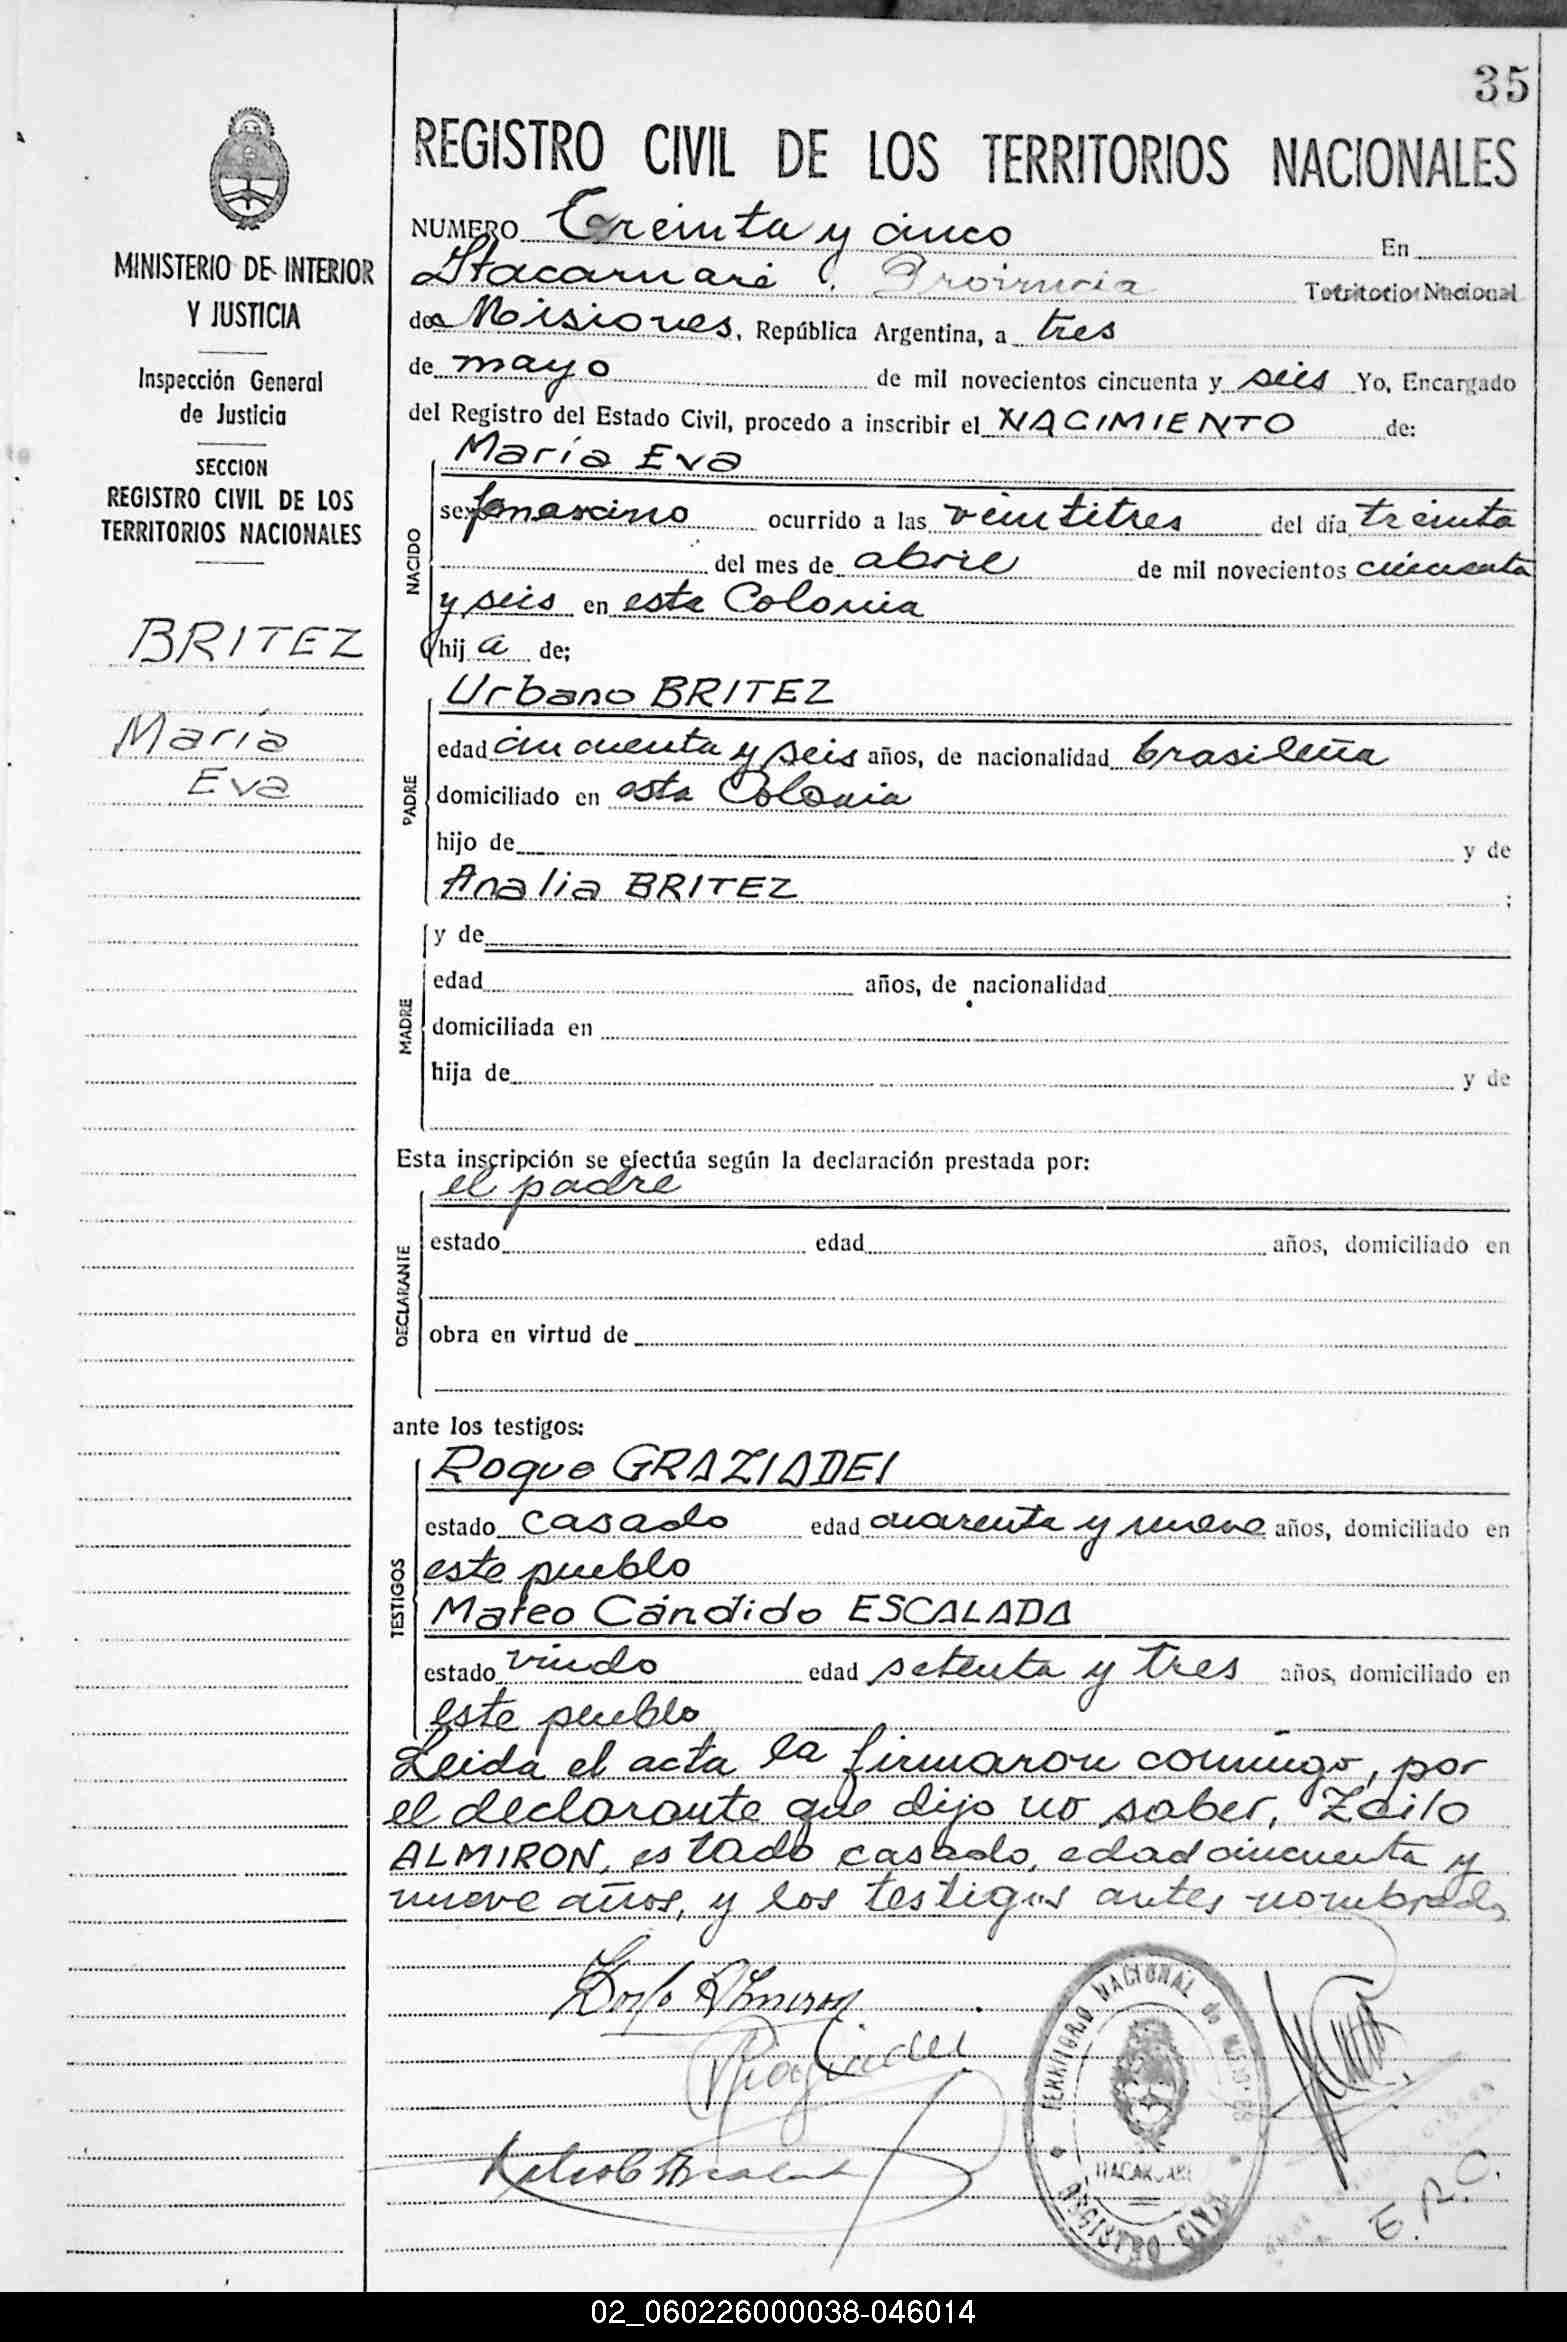 35
REGISTRO CIVIL DE LOS TERRITORIOS NACIONALES
MINISTERIO DE INTERIOR
Y JUSTICIA
Inspección General
de Justicia
SECCION
REGISTRO CIVIL DE LOS
TERRITORIOS NACIONALES
BRITEZ
María
Eva
NUMERO Treinta y cinco En
Itacaruaré. Provincia Territorio Nacional
de Misiones, República Argentina, a tres
de mayo de mil novecientos cincuenta y seis Yo, Encargado
del Registro del Estado Civil, procedo a inscribir el NACIMIENTO de:
NACIDO
María Eva
sexo femenino ocurrido a las veintitres del día treinta
del mes de abril de mil novecientos cincuenta
y seis en esta Colonia
hij a de;
PADRE
Urbano BRITEZ
edad cincuenta y seis años, de nacionalidad brasileña
domiciliado en esta Colonia
hijo de y de
Analia BRITEZ ;
MADRE
y de
edad años, de nacionalidad
domiciliada en
hija de y de
Esta inscripción se efectúa según la declaración prestada por:
DECLARANTE
el padre
estado edad años, domiciliado en
obra en virtud de
ante los testigos:
TESTIGOS
Roque GRAZIADEI
estado casado edad cuarenta y nueve años, domiciliado en
este pueblo
Mateo Cándido ESCALADA
estado viudo edad setenta y tres años, domiciliado en
este pueblo
Leida el acta la firmaron conmigo, por
el declarante que dijo no saber, Zoilo
ALMIRON, estado casado, edad cincuenta y
nueve años, y los testigos antes nombrados
TERRITORIO NACIONAL de MISIONES
ITACARUARE
REGISTRO CIVIL
E.R.C.
02_060226000038-046014